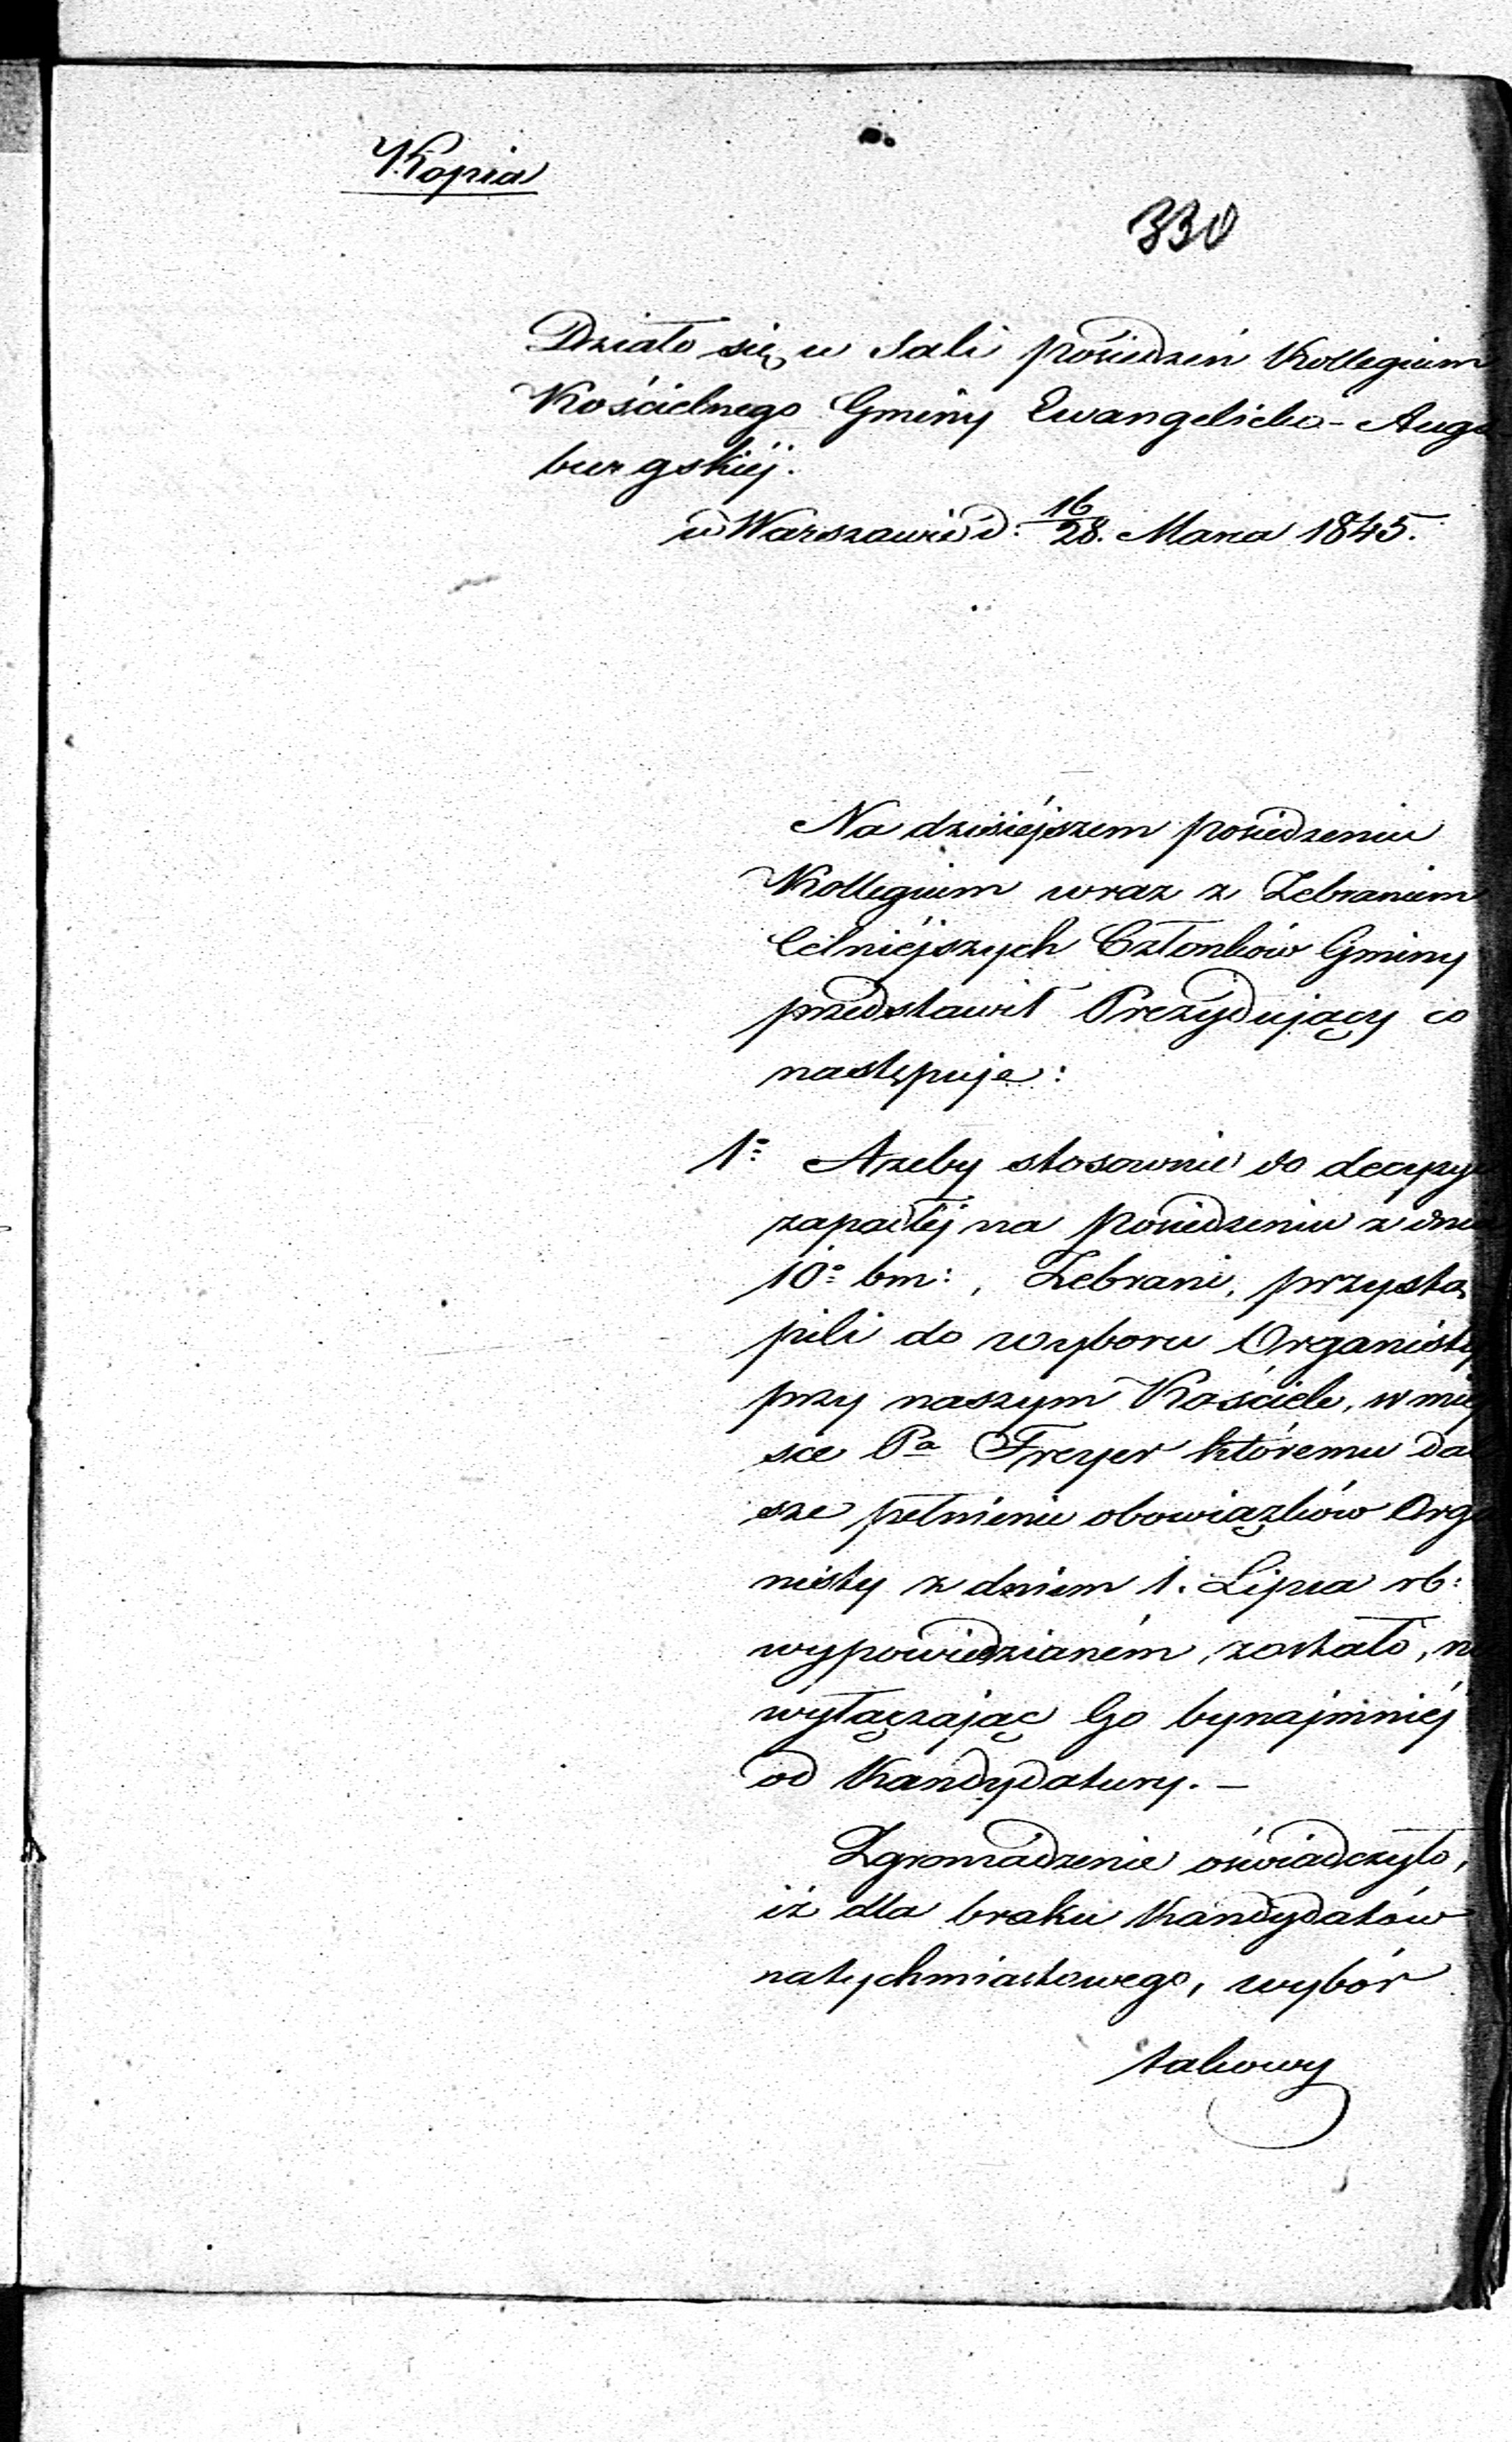 Kopia
330
Działo się w Sali posiedzeń Kollegium
Kościelnego Gminy Ewangelicko-Augs
burgskiéj.
w Warszawie d: 16/28. Marca 1845.
Na dzisiéjszem posiedzeniu
Kollegium wraz z Zebraniem
Celniéjszych Członków Gminy
przedstawił Prezydujący co
następuje:
1º Ażeby stosownie do decyzyi
zapadłéj na posiedzeniu z dnia
10º bm:, Zebrani, przystą
pili do wyboru Organisty
przy naszym Kościele, w miej
sce Pª Freyer któremu dal
sze pełnienie obowiązków Orga
nisty z dniem 1. Lipca rb:
wypowiedzianém, zostało, nie
wyłączając Go bynajmniéj
od Kandydatury. —
Zgromadzenie oświadczyło,
iż dla braku Kandydatów
natychmiastowego, wybór
takowy